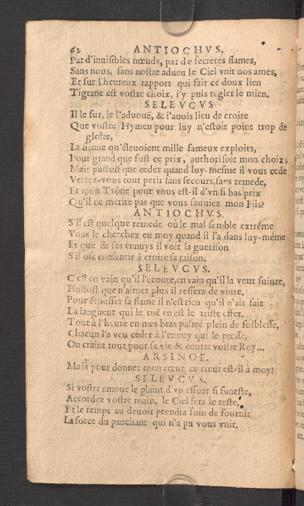 62 ANTIOCHVS,
Par d'inuisibles nœuds, par de secretes flames,
Sans nous, sans nostre adueu le Ciel vnit nos ames,
Et sur l'heureux rapport qui fait ce doux lien
Tigrane est vostre choix, i'y puis regler le mien.
SELEVCVS
Il le fut, ie l'aduouë, & i'auois lieu de croire
Que vostre Hymen pour luy n'estoit point trop de
gloire,
La sienne qu'éleuoient mille fameux exploits,
Pour grand que fust ce prix, authorisoit mon choix;
Mais plutost que ceder quand luy-mesme il vous cede
Verrez-vous tout perir sans secours, sans remede,
Et mon Trône pour vous est-il d'vn si bas prix
Qu'il ne merite pas que vous sauuiez mon Fils?
ANTIOCHVS.
S'il est quelque remede où le mal semble extréme
Vous le cherchez en moy quand il l'a dans luy-méme
Et que de ses ennuys il voit la guerison
S'il ose consentir à croire sa raison.
SELEVCVS.
C'est en vain qu'il l'écoute, en vain qu'il la veut suiure,
Plustost que n'aimer plus il cessera de viure,
Pour étouffer sa flame il n'est rien qu'il n'ait fait
La langueur qui le tuë en est le triste effet.
Tout à l'heure en mes bras pasmé plein de foiblesse,
Chacun l'a veu ceder à l'ennuy qui le presse,
On craint tout pour sa vie & contre vostre Roy...
ARSINOE.
Mais pour donner mon cœur, ce cœur est-il à moy?
SELEVCVS.
Si vostre amour le plaint d'vn effort si funeste,
Accordez vostre main, le Ciel fera le reste,
Et le temps au deuoir prendra soin de fournir
La force du panchant qui n'a pu vous vnir.